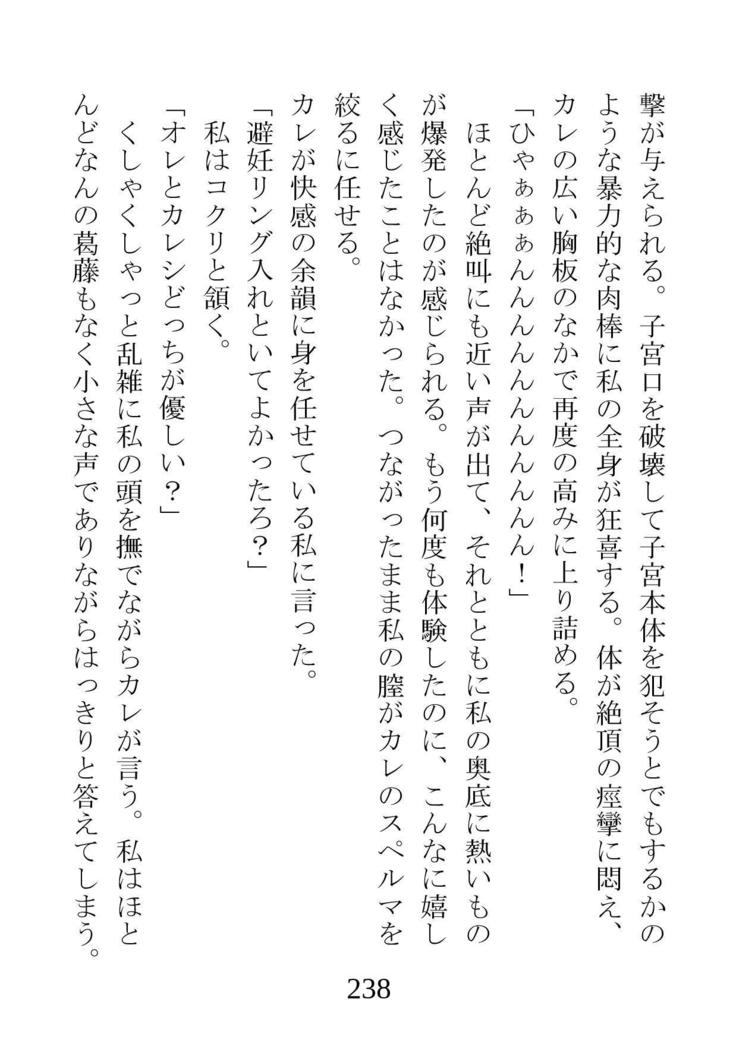 撃が与えられる。子宮口を破壊して子宮本体を犯そうとでもするかの
ような暴力的な肉棒に私の全身が狂喜する。体が絶頂の痙攣に悶え、
カレの広い胸板のなかで再度の高みに上り詰める。
「ひゃぁぁぁんんんんんんんんんんん！」
ほとんど絶叫にも近い声が出て、それとともに私の奥底に熱いもの
が爆発したのが感じられる。もう何度も体験したのに、こんなに嬉し
く感じたことはなかった。つながったまま私の膣がカレのスペルマを
絞るに任せる。
カレが快感の余韻に身を任せている私に言った。
「避妊リング入れといてよかったろ？」
私はコクリと頷く。
「オレとカレシどっちが優しい？」
くしゃくしゃっと乱雑に私の頭を撫でながらカレが言う。私はほと
んどなんの葛藤もなく小さな声でありながらはっきりと答えてしまう。
238